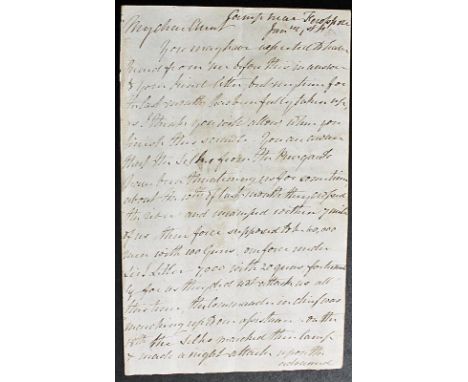 My dear Aunt Camp near Ferozpore
Jan
You may have expected to have
heard from me before this in answer
to your kind letter but my time for
the last month has been fully taken up,
as I think you will allow when you
finish this scrawl. You are aware
that the Seikhs from the Punjaub
have been threatening us for some time
about the 10th of last month they crossed
the river and encamped within 7 miles
of us their force supposed to be 40,000
men with 100 Guns, our force under
Sir Litler 7,000 with 20 guns, fortunate
ly for us they did not attack us all
this time the Commander in chief was
marching up from upstream on the
18th the Seikhs marched their camp
& made a night attack upon the
advanced